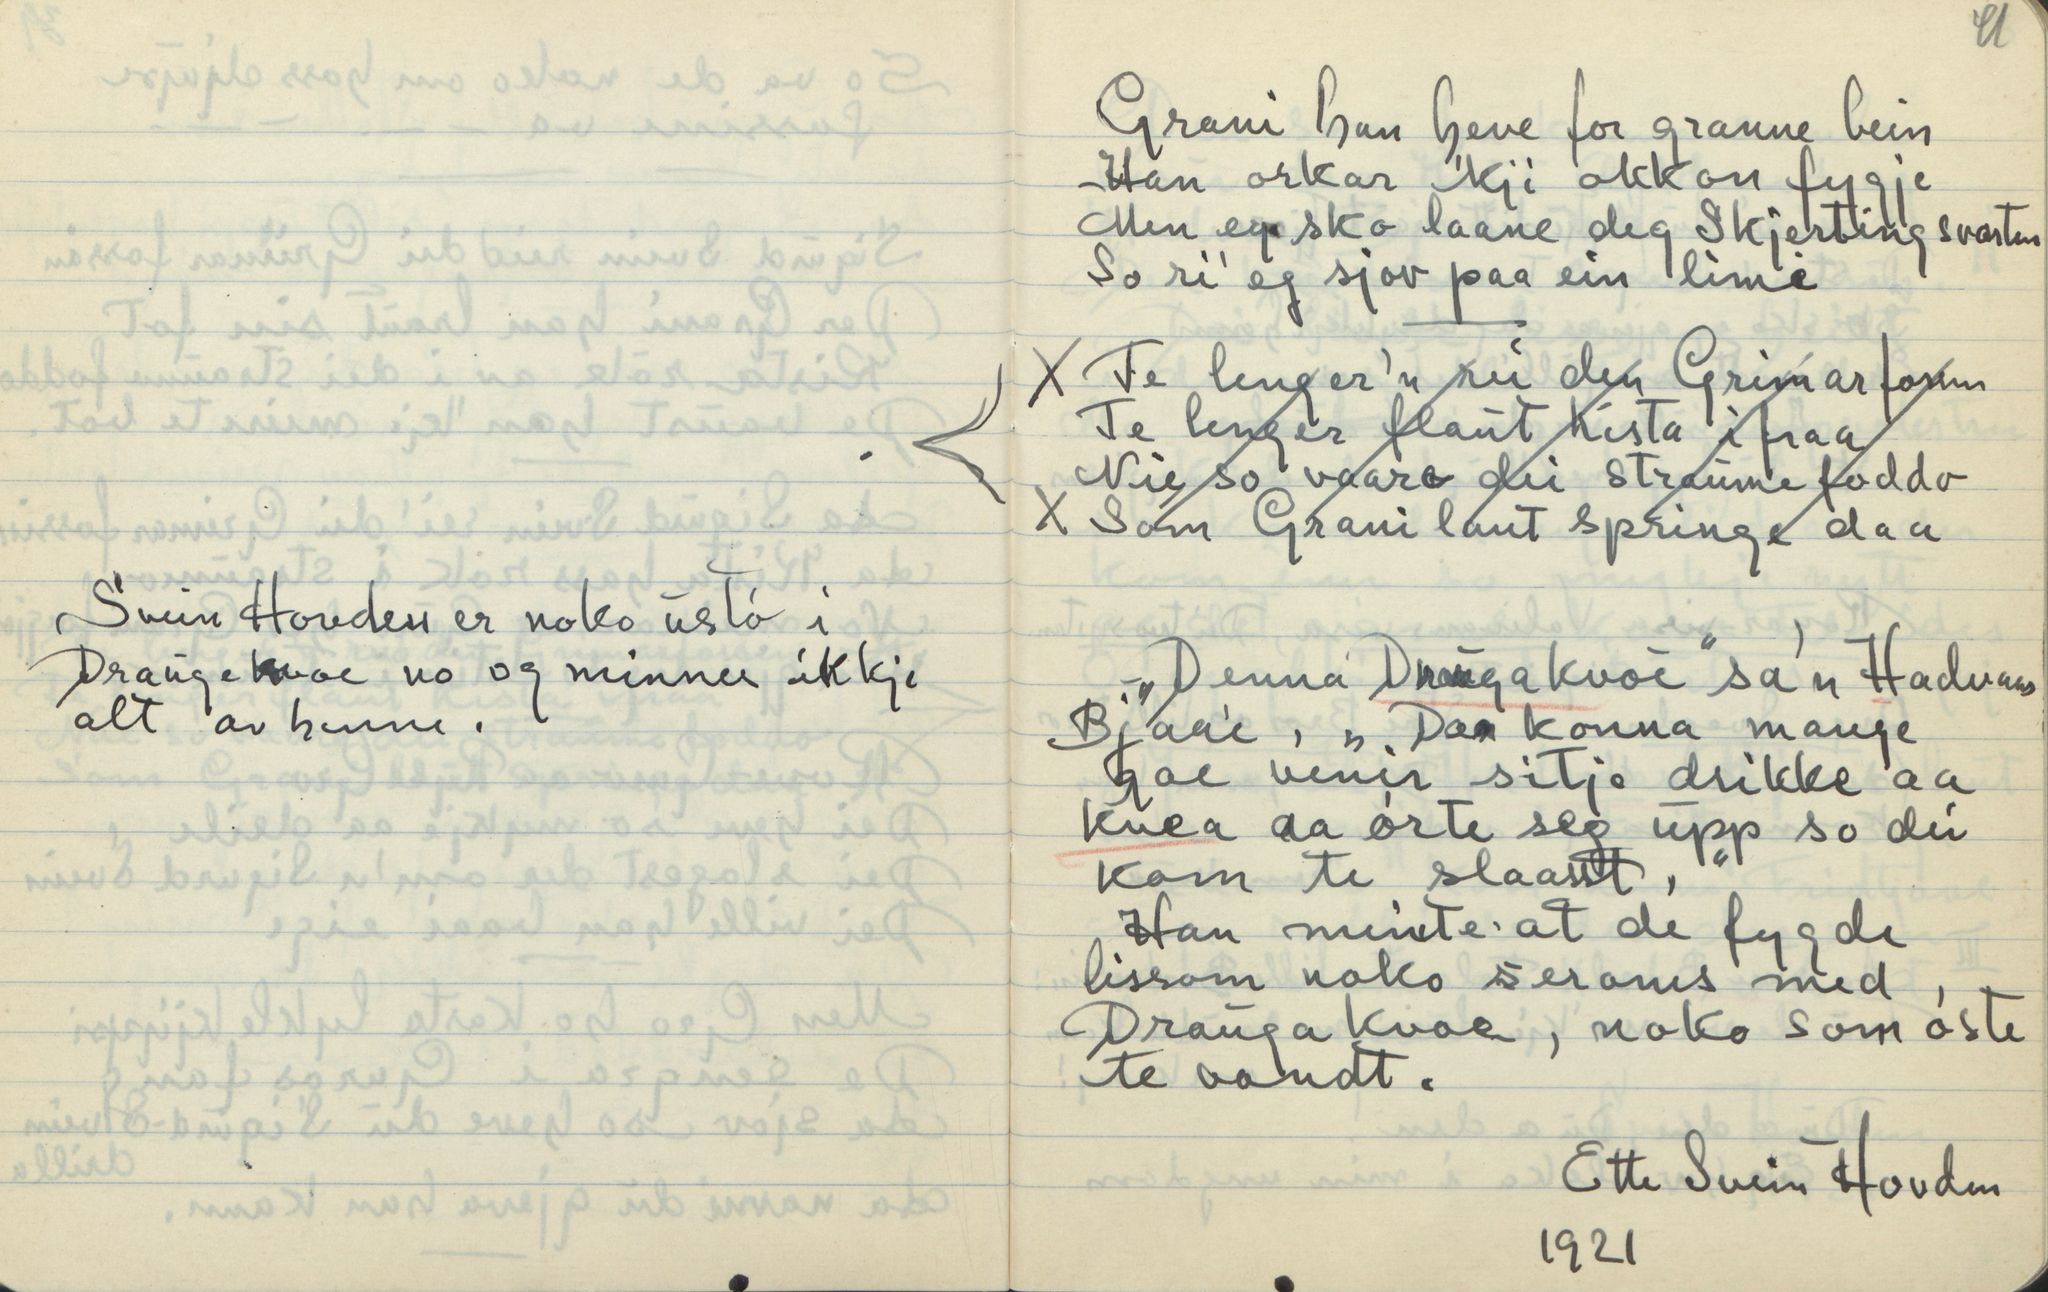 Svein Hovden er noko ustø i
Draugekvæe no og minnes ikkje
alt av henne.
41
Grani han heve for granne bein
Han orkar 'kji okkon fygje
Men eg sko laane deg Skjerting svarten
So ri' eg sjov paa ein lime
X Te lenger'n rei den Grimar fossen
Te lenger flaut kista ifraa
Nie so vaare dei straume foddo
X Som Grani laut springe daa
„Denna Draugakvæe" sa'n Hadvaar
Bjaa'e, „Daa konna mange
gae venir sitje drikke aa
kvea aa ørte seg upp so dei
kom te slaast,"
Han meinte at de fygde
lissom noko serams med
Draugakvæe, noko som øste
te vondt.
Ette Svein Hovden
1921